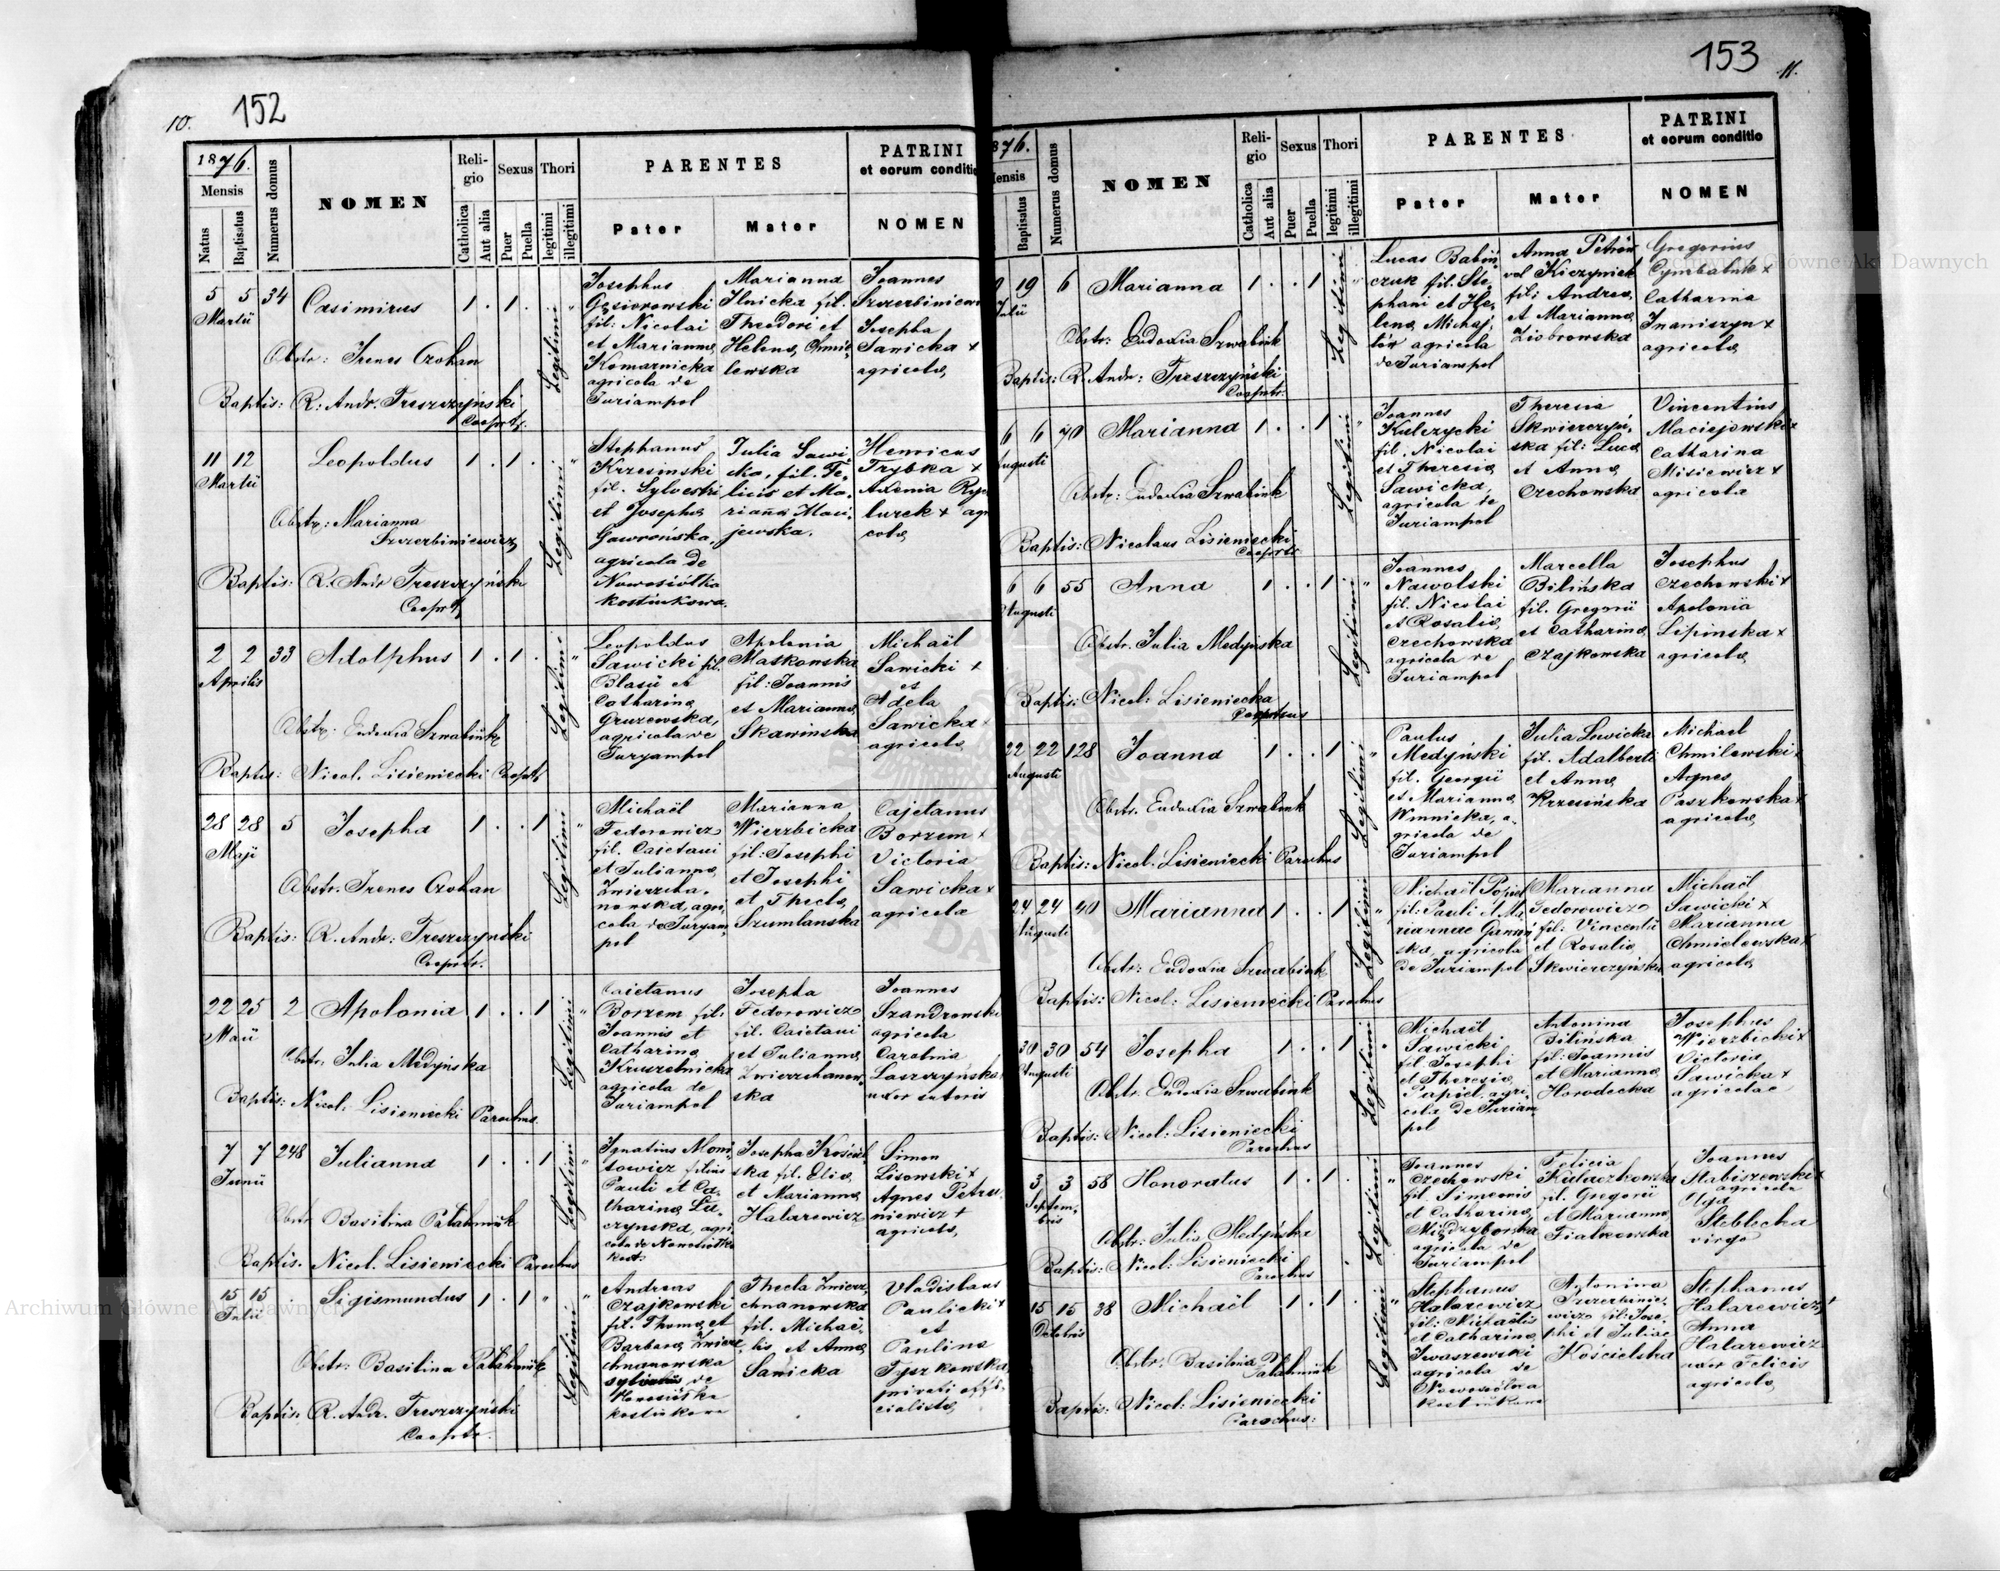 10.
152
1876.
Mensis
Natus
Baptisatus
Numerus domus
NOMEN
Religio
Catholica
Aut alia
Sexus
Puer
Puella
Thori
legitimi
illegitimi
PARENTES
Pater
Mater
PATRINI
et eorum conditio
NOMEN
5 5 34 Casimirus 1 . 1 .
Martii
Obstr: Irenes Czohan
Baptis: R. Andr. Treszczyński
Cooprt.
Legitimi
Josephus
Gąsiorowski
fil: Nicolai
et Marianna,
Komarnicka
agricola de
Juriampol
Marianna
Ilnicka fil.
Theodori et
Helena, Chmie-
lewska
Joannes
Szczerbiniewi
Josepha
Sawicka +
agricola,
11 12 Leopoldus 1 . 1 .
Martii
Obstr: Marianna
Szczerbiniewicz
Baptis: R. Andr Treszczyński
Cooprt.
Legitimi
Stephanus
Krzesinski
fil. Sylvestri
et Josepha,
Gawrońska,
agricola de
Nowosiółka
kostiukowa.
Julia Sawi-
cka, fil. Fe-
licis et Ma-
rianna Maci-
jewska.
Henricus
Trybka +
Axenia Ryp
turek + agr
cola,
2 2 33 Adolphus 1 . 1 .
Aprilis
Obstr. Eudoxia Szwabiuk
Baptis: Nicol. Lisieniecki Cooprt.
Legitimi
Leopoldus
Sawicki fil.
Blasii et
Catharina,
Gruzewska,
agricola de
Juryampol
Apolonia
Maskowska
fil: Joannis
et Marianna,
Skawinska
Michaël
Sawicki +
et
Adela
Sawicka +
agricola,
28 28 5 Josepha 1 . . 1
Maji
Obstr. Irenes Czohan
Baptis: R. Andr. Treszczyński
Cooprtr.
Legitimi
Michaël
Fedorowicz
fil. Caietani
et Julianna,
Zwierzcha-
nowska, agri-
cola de Juryam-
pol
Marianna
Wierzbicka
fil: Josephi
et Josephi
et Thecla,
Szumlanska
Cajetanus
Borzem +
Victoria
Sawicka +
agricola
22 25 2 Apolonia 1 . . 1
Maii
Obstr. Julia Medyńska
Baptis: Nicol. Lisieniecki Parochus.
Legitimi
Caietanus
Borzem fil:
Joannis et
Catharina,
Kruszelnicka
agricola de
Juriampol
Josepha
Fedorowicz
fil. Caietani
et Julianna,
Zwierzchanow-
ska
Joannes
Szandrowski
agricola
Carolina
Laszczyńska
uxor sutoris
7 7 248 Julianna 1 . . 1
Junii
Obstr Basilina Patahniuk
Baptis. Nicol. Lisieniecki Parochus
Legitimi
Ignatius Moni-
towicz filius
Pauli et Ca-
tharina, Lu-
czynska, agri-
cola de Nowosiółka
kost.
Josepha Kościel-
ska fil. Elia,
et Marianna,
Halarewicz
Simon
Lisowski +
Agnes Petru-
niewicz +
agricola,
15 15 . Sigismundus 1 . 1
Julii
Obstr: Basilina Patahniuk
Baptis. R. Andr. Treszczyński
Cooptr.
Legitimi
Andreas
Czajkowski
fil. Thoma, et
Barbara, Zwierz-
chnanowska
de
Nowosiółka
kostiukowa
Thecla Zwierz-
chnanowska
fil. Michaë-
lis et Anna,
Sanicka
Vladislaus
Paulicki +
et
Paulina
Tyszkowska,
privati offi-
cialista,
153
11.
876.
ensis
Baptisatus
Numerus domus
NOMEN
Religio
Catholica
Aut alia
Sexus
Puer
Puella
Thori
legitimi
illegitimi
PARENTES
Pater
Mater
PATRINI
et eorum conditio
NOMEN
19 6 Marianna 1 . . 1
Julii
Obstr: Eudoxia Szwabiuk
Baptis: R. Andr: Treszczyński
Cooprtr.
Legitimi
Lucas Babin-
czuk fil. Ste-
phani et He-
lena, Michaj-
lów agricola
de Juriampol
Anna Petrów
vel Kiczyniak
fil: Andrea,
et Marianna,
Ziobrowska
Gregorius
Cymbaluk +
Catharina
Inaniszyn +
agricola,
6 6 70 Marianna 1 . . 1
Augusti
Obstr: Eudoxia Szwabiuk
Baptis: Nicolaus Lisieniecki
Cooprtr.
Legitimi
Joannes
Kulczycki
fil. Nicolai
et Theresia,
Sawicka,
agricola de
Juriampol
Theresia
Skwierczyń-
ska fil: Luca,
et Anna,
Czechowska
Vincentius
Maciejowski +
Catharina
Misiewicz +
agricola
6 6 55 Anna 1 . . 1
Augusti
Obstr. Julia Medyńska
Baptis: Nicol: Lisieniecka
Legitimi
Joannes
Nawolski
fil. Nicolai
et Rosalia,
Czechowska
agricola de
Juriampol
Marcella
Bilińska
fil. Gregorii
et Catharina,
Czajkowska
Josephus
Czechowski +
Apolonia
Lipinska +
agricola,
22 22 128 Joanna 1 . . 1
Augusti
Obstr. Eudoxia Szwabiuk
Baptis: Nicol. Lisieniecki Parochus
Legitimi
Paulus
Medyński
fil. Georgii
et Marianna,
Winnicka, a-
gricola de
Juriampol
Julia Lewicka
fil. Adalberti
et Anna,
Krzesińska
Michael
Chmilewski +
Agnes
Paszkowska +
agricola,
24 24 40 Marianna 1 . . 1
Augusti
Obstr: Eudoxia Szwabiuk
Baptis: Nicol: Lisieniecki Parochus
Legitimi
Michaël Popiel
fil: Pauli et Ma-
riannae Gawroń
ska, agricola
de Juriampol
Marianna
Fedorowicz
fil: Vincentii
et Rosalia,
Skwierczyńska
Michaël
Sawicki +
Marianna
Chmielewska +
agricola,
30 30 54 Josepha 1 . . 1
Augusti
Obstr: Eudoxia Szwabiuk
Baptis: Nicol: Lisieniecki
Parochus
Legitimi
Michaël
Sawicki
fil Josephi
et Theresia,
Papiel, agri-
cola de Juriam-
pol
Antonina
Bilińska
fil: Joannis
et Marianna,
Horodecka
Josephus
Wierzbicki +
Victoria
Sawicka +
agricolae
3 3 58 Honoratus 1 . 1 .
Septem-
bris
Obstr: Julia Medyńska
Baptis: Nicol: Lisieniecki
Parochus
Legitimi
Joannes
Czechowski
fil. Simeonis
et Catharina,
Międzyborska
agricola de
Juriampol
Felicia
Kulaczkowska
fil. Gregorii
et Marianna,
Fialkowska
Joannes
Stabiszewski +
agricola
Olga
Steblecka
virgo
15 15 38 Michaël 1 . 1 .
Octobris
Obstr. Basilina Patahniuk
Baptis: Nicol: Lisieniecki
Parochus:
Legitimi
Stephanus
Halarewicz
fil: Michaëlis
et Catharina,
Iwaszewski
agricola de
Nowosiółka
kostiukowa
Antonina
Szczerbinie-
wicz fil: Jose-
phi et Juliae
Kościelska
Stephanus
Halarewicz +
Anna
Halarewicz
uxor Felicis
agricola,
Archiwum Główne Akt Dawnych
Archiwum Główne Akt Dawnych